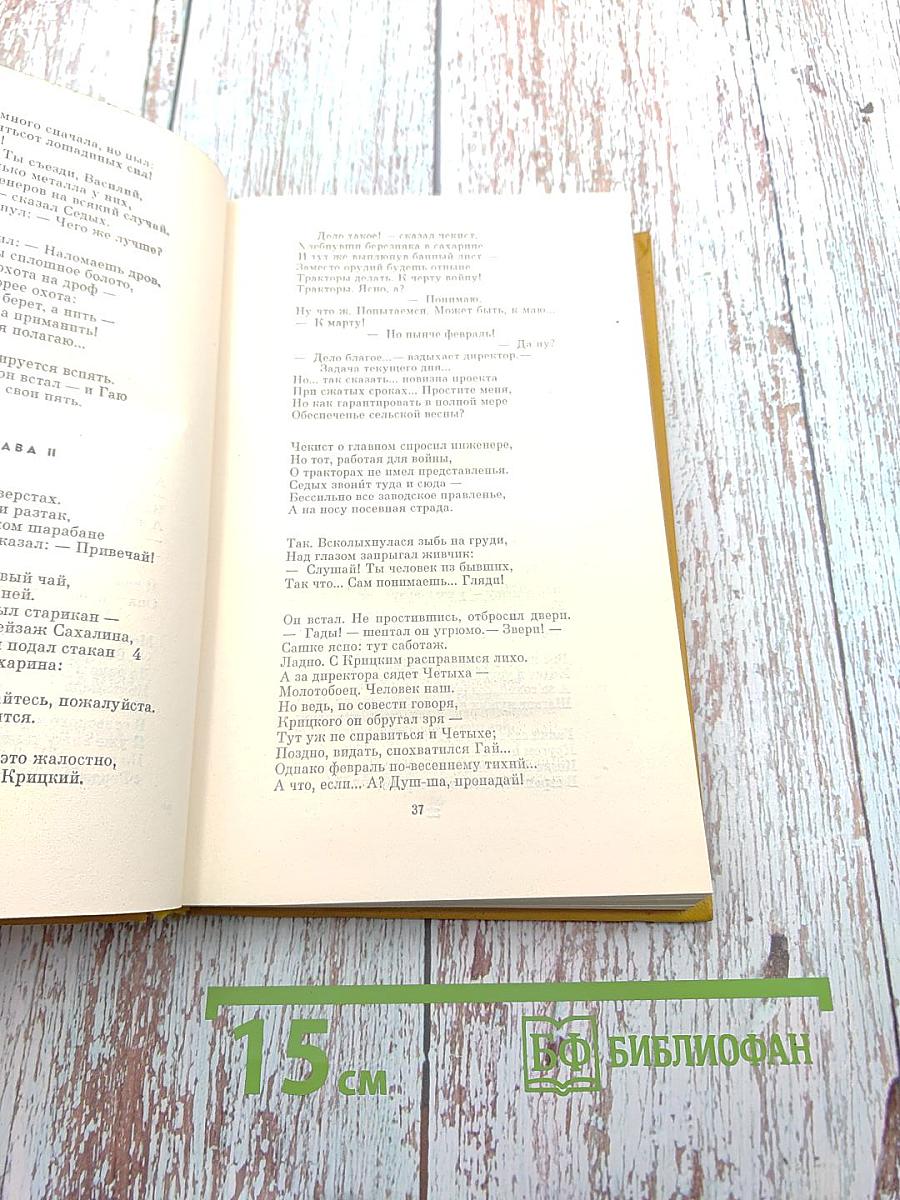 много сначала, но пыл:
тьсот лошадиных сил!
Ты съезди, Василий,
лько металла у них,
енеров на всякий случай,
— сказал Седых.
нул: — Чего же лучше?
ил: — Наломаешь дров,
ы сплошное болото,
охота на дроф —
орее охота:
берет, а нить —
а приманить!
я полагаю...
ируется вспять.
он встал — и Гаю
свои пять.
АВА II
верстах.
и разтак,
ком шарабане
казал: — Привечай!
вый чай,
ней.
ыл старикан —
ейзаж Сахалина,
подал стакан 4
харина:
йтесь, пожалуйста.
ится.
это жалостно,
Крицкий.
Дело такое! — сказал чекист,
Хлебнувши березняка в сахарине
И тут же выплюнув банный лист —
Заместо орудий будешь отныне
Тракторы делать. К черту войну!
Тракторы. Ясно, а?
— Понимаю.
Ну что ж. Попытаемся. Может быть, к маю...
— К марту!
— Но нынче февраль!
— Да ну?
— Дело благое... — вздыхает директор.—
Задача текущего дня...
Но... так сказать... новизна проекта
При сжатых сроках... Простите меня,
Но как гарантировать в полной мере
Обеспеченье сельской весны?
Чекист о главном спросил инженере,
Но тот, работая для войны,
О тракторах не имел представленья.
Седых звони́т туда и сюда —
Бессильно все заводское правленье,
А на носу посевная страда.
Так. Всколыхнулася зыбь на груди,
Над глазом запрыгал живчик:
— Слушай! Ты человек из бывших,
Так что... Сам понимаешь... Гляди!
Он встал. Не простившись, отбросил двери.
— Гады! — шептал он угрюмо.— Звери! —
Сашке ясно: тут саботаж.
Ладно. С Крицким расправимся лихо.
А за директора сядет Четыха —
Молотобоец. Человек наш.
Но ведь, по совести говоря,
Крицкого он обругал зря —
Тут уж не справиться и Четыхе;
Поздно, видать, спохватился Гай...
Однако февраль по-весеннему тихий...
А что, если... А? Душ-ша, пропадай!
37
15 см
БФ БИБЛИОФАН